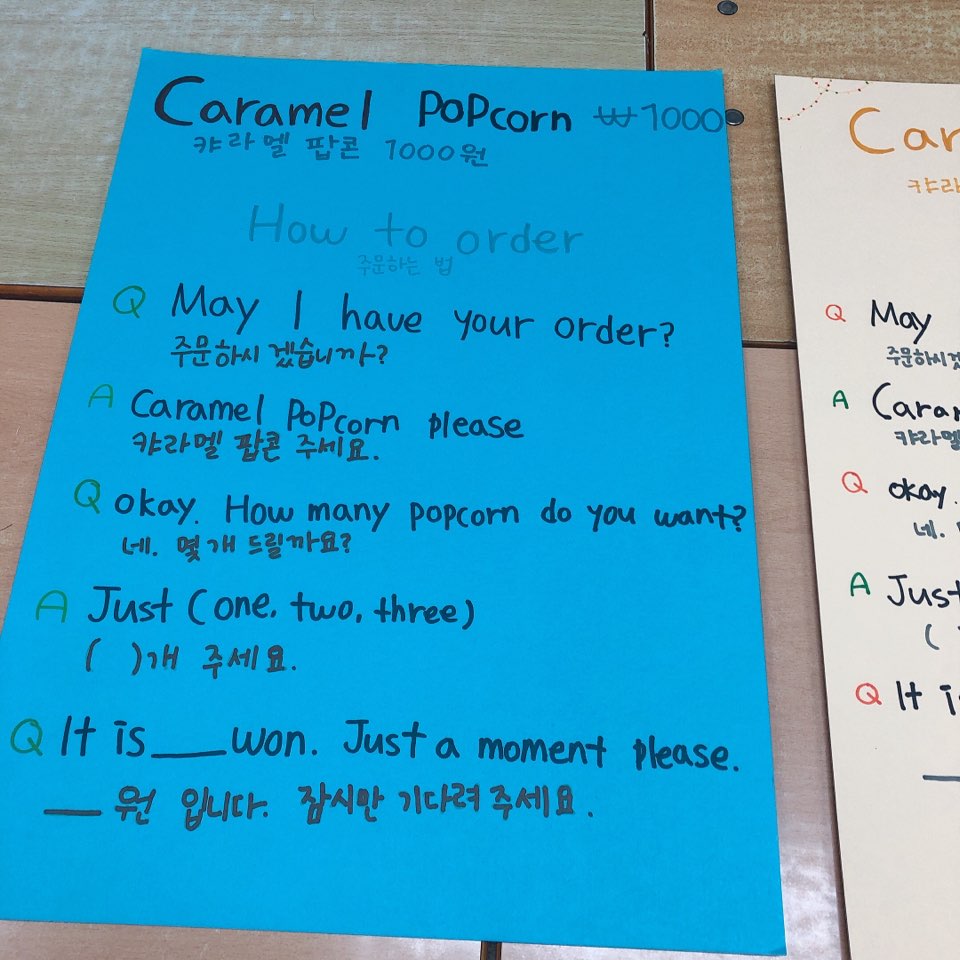 Caramel PoPcorn ₩1000
캬라멜 팝콘 1000원
How to order
주문하는 법
Q May I have your order?
주문하시겠습니까?
A Caramel PoPcorn please
캬라멜 팝콘 주세요.
Q okay. How many popcorn do you want?
네. 몇개 드릴까요?
A Just (one, two, three)
( )개 주세요.
Q It is ___ won. Just a moment please.
___ 원 입니다. 잠시만 기다려주세요.
Car
캬라
Q May
주문하시겠
A Caram
캬라멜
Q okay.
네.
A Just
(
Q It i